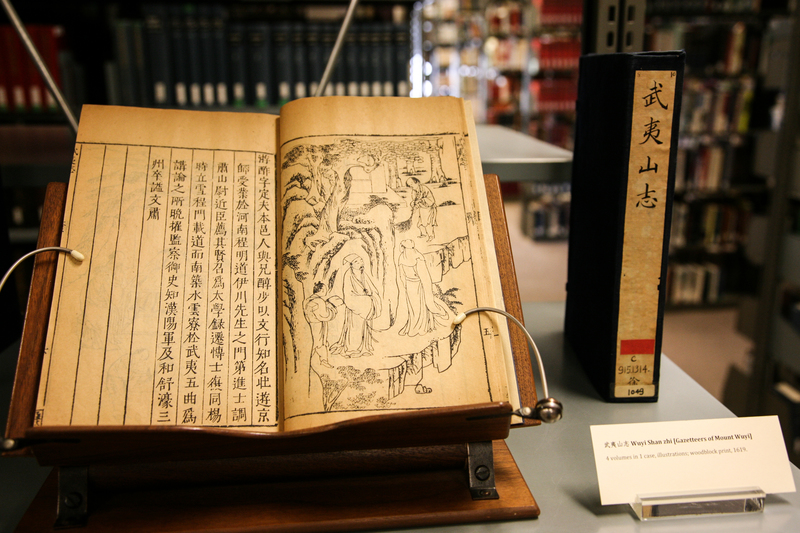 游酢字定夫本邑人與兄醇步以文行知名壯遊京
師受業於河南程明道伊川先生之門第進士調
蕭山尉近臣薦其賢召爲太學錄遷博士復同楊
時立雪程門載道而南築水雲寮於武夷五曲爲
講論之所晚擢監察御史知漢陽軍及和舒濠三
州卒謚文肅
五
武夷山志
C
9151314.
徐
1049
武夷山志 Wuyi Shan zhi [Gazetteers of Mount Wuyi]
4 volumes in 1 case, illustrations; woodblock print, 1619.